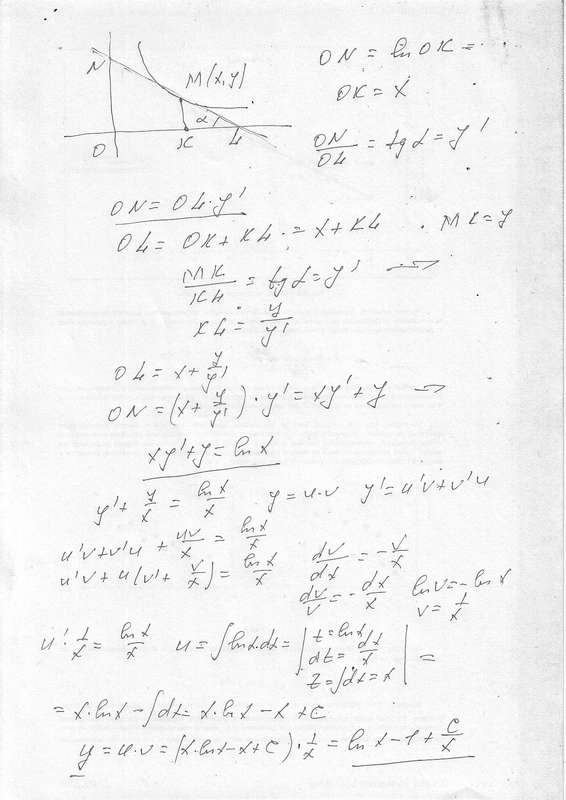 N
M(x,y)
α
O
K
L
ON = ln OK =
OK = x
ON/OL = tg α = y'
ON = OL·y'
OL = OK + KL = x + KL . MK = y
MK/KL = tg α = y' →
KL = y/y'
OL = x + y/y'
ON = (x + y/y')·y' = xy' + y →
xy' + y = ln x
y' + y/x = ln x/x y = u·v y' = u'v + v'u
u'v + v'u + uv/x = ln x/x
u'v + u(v' + v/x) = ln x/x dv/dx = -v/x
dv/v = -dx/x ln v = -ln x
v = 1/x
u'·1/x = ln x/x u = ∫ln x·dx = | t = ln x
dt = dx/x
z = ∫dx = x | =
= x·ln x - ∫dx = x·ln x - x + C
y = u·v = (x·ln x - x + C)·1/x = ln x - 1 + C/x